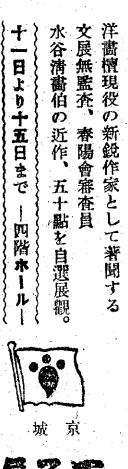 洋畵檀現役の新鋭作家として著聞する
文展無監査、春陽會審査員
水谷清畵伯の近作、五十點を自選展觀。
十一日より十五日まで ―四階ホール―
京城